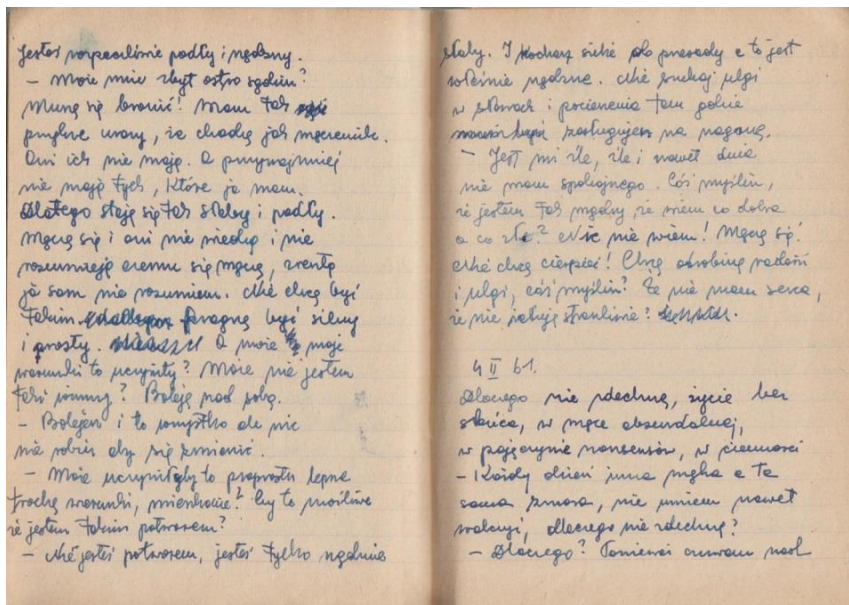 Jesteś rozpaczliwie podły i nędzny.
– Może mnie zbyt ostro sądzim?
Muszę się bronić! Mam tak
przykre urazy, że chodzę jak męczennik.
Oni ich nie mają. A przynajmniej
nie mają tych, które ja mam.
Dlatego staję się tak słaby i podły.
Męczę się i oni nie wiedzą i nie
rozumieją czemu się męczę, zresztą
ja sam nie rozumiem. Nie chcę być
takim pragnę być silny
i prosty. A może moje
warunki to uczyniły? Może nie jestem
taki winny? Boleję nad sobą.
– Bolejesz i to wszystko ale nic
nie robisz aby się zmienić.
– Może uczyniłyby to poprostu lepsze
trochę warunki, mieszkanie? Czy to możliwe
że jestem takim potworem?
– Nie jesteś potworem, jesteś tylko nędznie
słaby. I kochasz siebie do przesady a to jest
właśnie nędzne. Nie szukaj ulgi
w słowach i pocieszenia tam gdzie
zasługujesz na naganę.
– Jest mi źle, źle i nawet dnia
nie mam spokojnego. Cóż myślisz,
że jestem tak mądry, że wiem co dobre
a co złe? Nic nie wiem! Męczę się!
Nie chcę cierpieć! Chcę odrobinę radości
i ulgi, cóż myślisz? Że nie mam serca,
że nie żałuję straszliwie?
4 II 61.
Dlaczego nie zdechnę, życie bez
słońca, w męce absurdalnej,
w pajęczynie nonsensów, w ciemności
– Każdy dzień inna męka a ta
sama zmora, nie umiem nawet
walczyć, dlaczego nie zdechnę?
– Dlaczego? Ponieważ czuwam nad